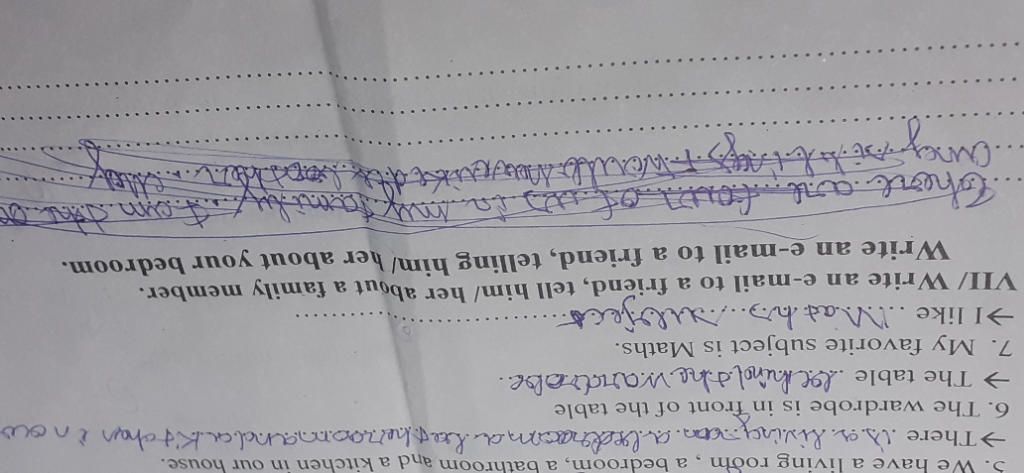 5. We have a living room , a bedroom, a bathroom and a kitchen in our house.
→ There is a living room a bedroom a bathroom and a kitchen in ou
6. The wardrobe is in front of the table
→ The table behind the wardrobe.
7. My favorite subject is Maths.
→ I like Maths subject
VII/ Write an e-mail to a friend, tell him/ her about a family member.
Write an e-mail to a friend, telling him/ her about your bedroom.
There are four of us in my family I am the
my I would